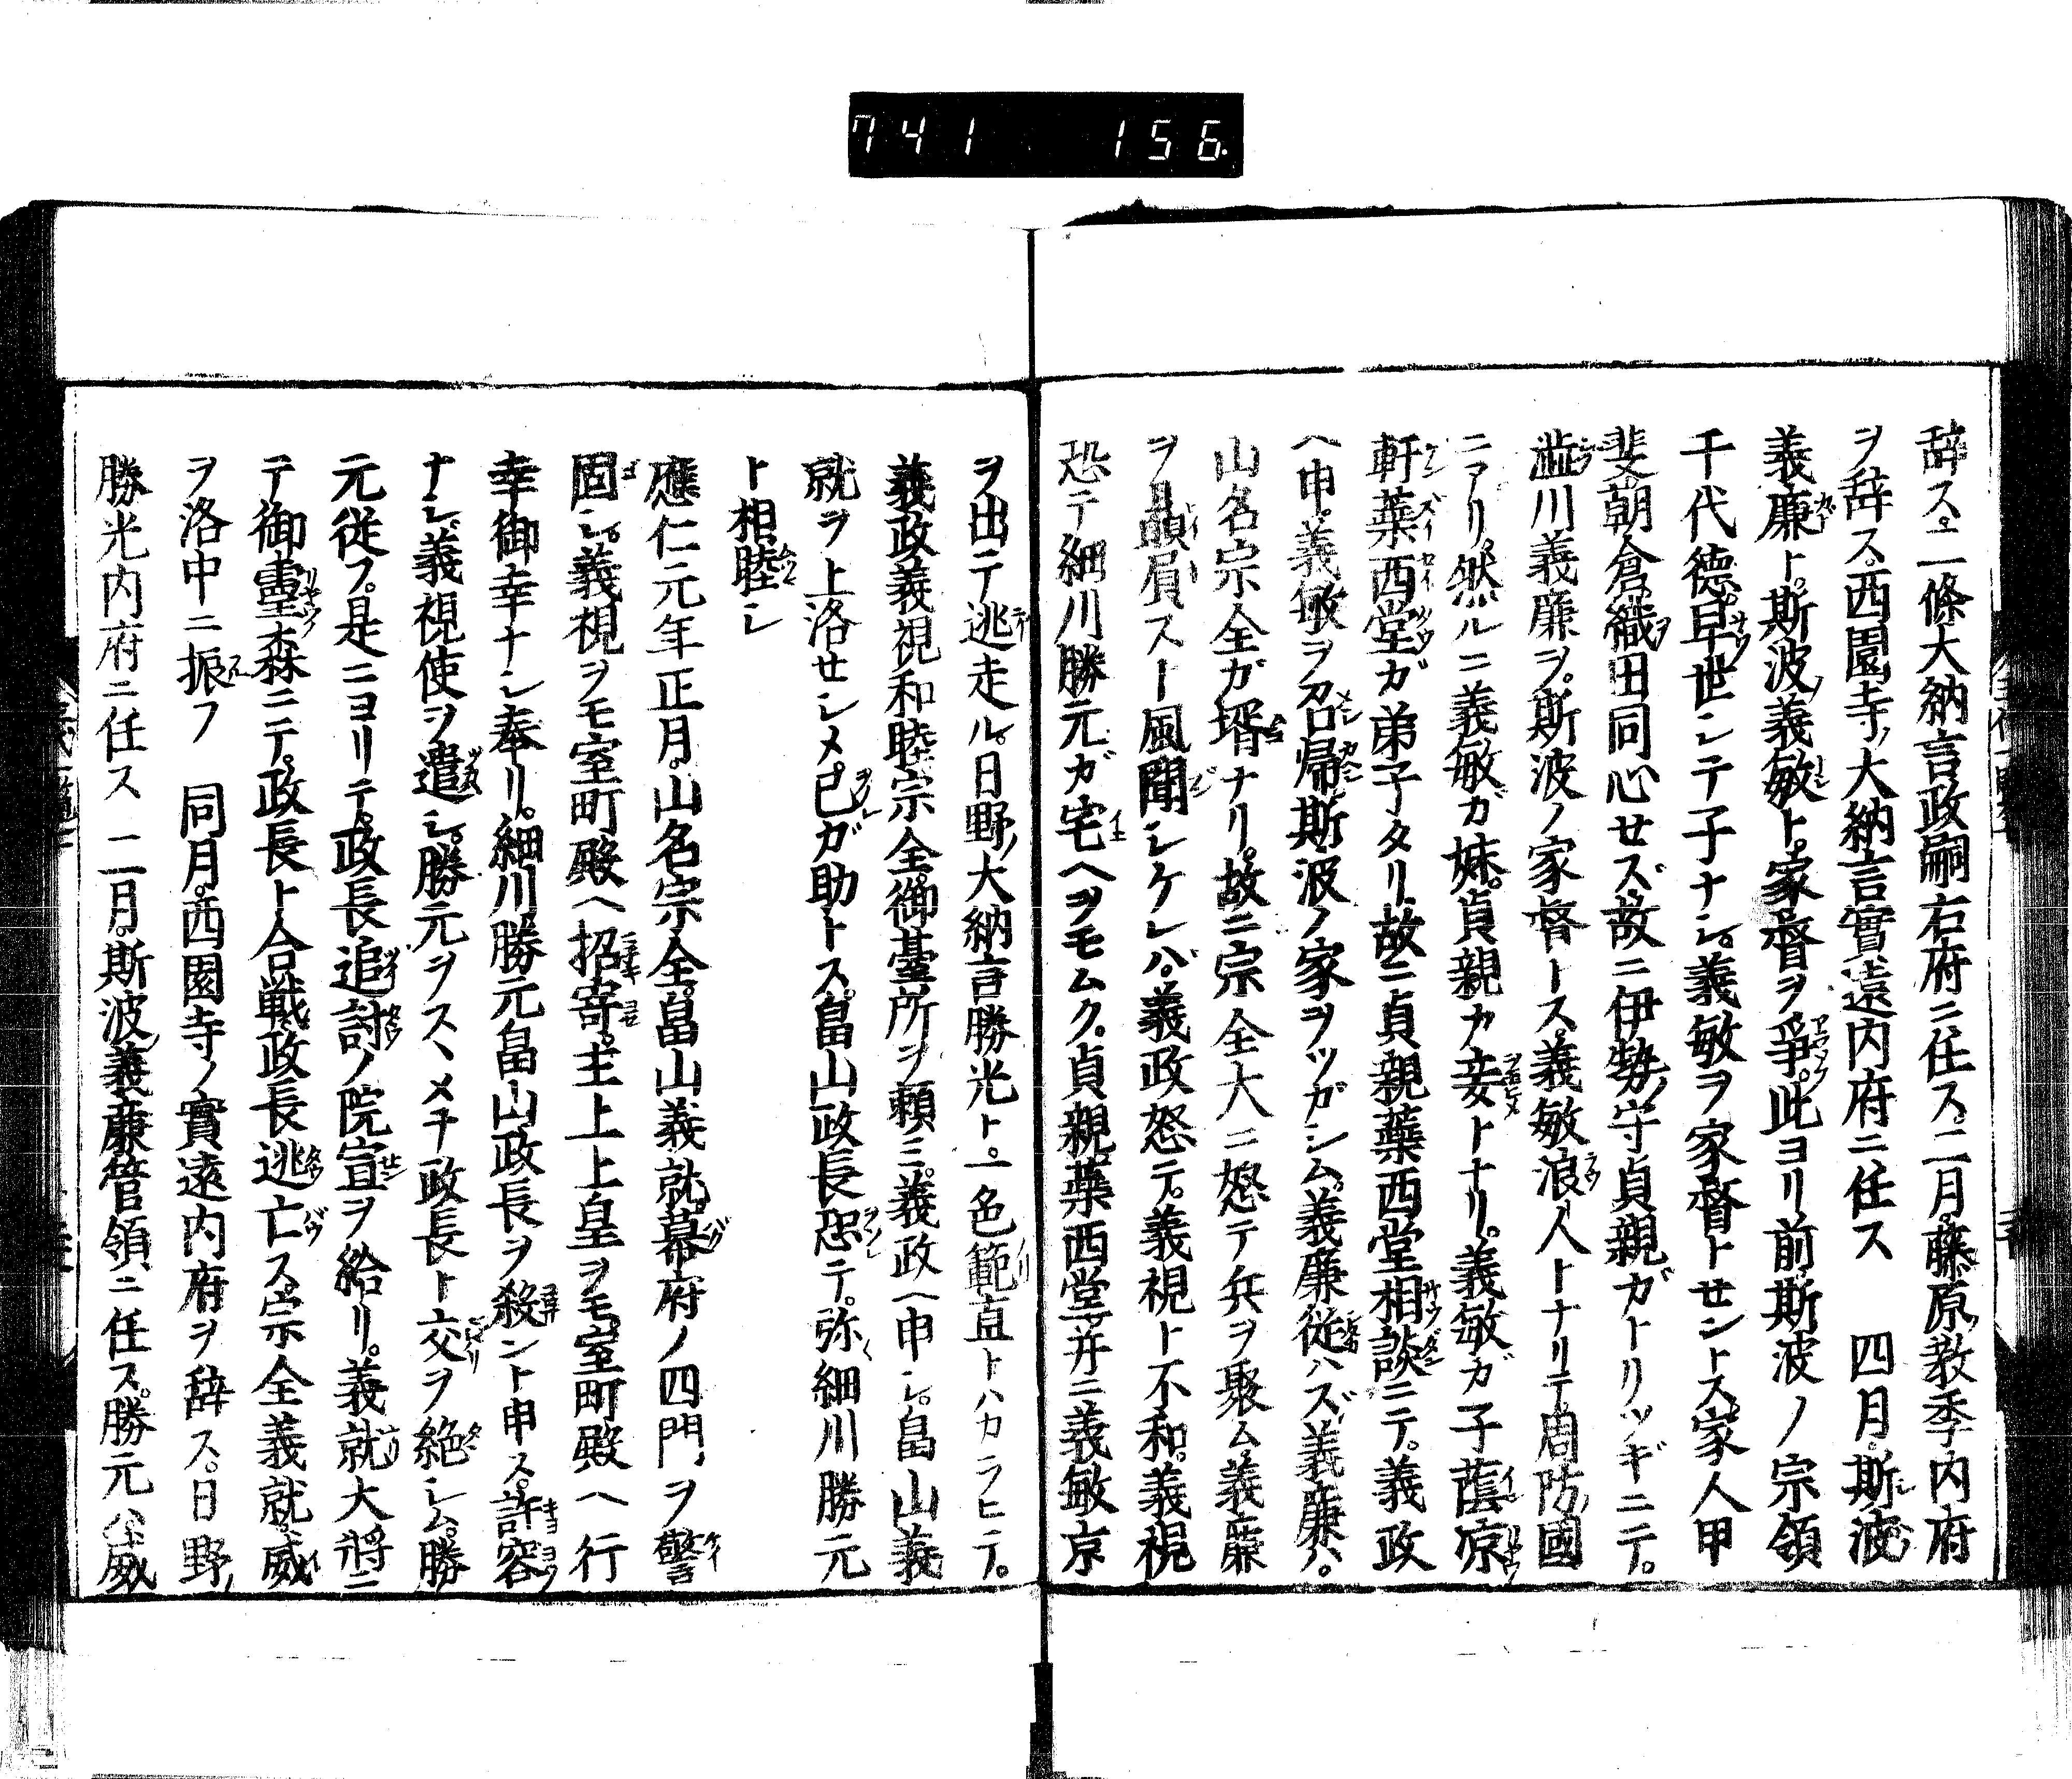 741 156
辞ス。二條大納言政嗣右府ニ任ス。二月。藤原ノ教季内府
ヲ辞ス。西園寺ノ大納言實遠内府ニ任ス 四月。斯波
義廉ト。斯波ノ義敏ト。家督ヲ爭。此ヨリ前斯波ノ宗領
千代徳。早世シテ子ナシ。義敏ヲ家督トセントス。家人甲
斐朝倉織田同心セズ。故ニ伊勢ノ守貞親ガトリツギニテ。
澁川義廉ヲ。斯波ノ家督トス。義敏浪人トナリテ周防ノ國
ニアリ。然ルニ義敏ガ妹。貞親カ妾トナリ。義敏ガ子蔭凉
軒蘂西堂ガ弟子タリ。故ニ貞親蘂西堂相談ニテ。義政
ヘ申。義敏ヲ召帰斯波ノ家ヲツガシム。義廉従ハズ。義廉ハ。
山名宗全ガ壻ナリ。故ニ宗全大ニ怒テ兵ヲ聚ム。義廉
ヲ贔屓スト風聞シケレバ。義政怒テ。義視ト不和。義視
恐テ細川勝元ガ宅ヘヲモムク。貞親蘂西堂。并ニ義敏京
ヲ出テ逃走ル。日野ノ大納言勝光ト。一色範直トハカラヒテ。
義政義視和睦宗全。御臺所ヲ頼ミ。義政ヘ申シ。畠山義
就ヲ上洛セシメ。己ガ助トス。畠山政長恐テ。弥細川勝元
ト相睦シ
應仁元年正月。山名宗全。畠山義就。幕府ノ四門ヲ警
固シ。義視ヲモ室町殿ヘ招寄。主上上皇ヲモ。室町殿ヘ行
幸御幸ナシ奉リ。細川勝元畠山政長ヲ殺ント申ス。許容
ナシ。義視使ヲ遣シ。勝元ヲスヽメテ政長ト交ヲ絶シム。勝
元従フ。是ニヨリテ。政長追討ノ院宣ヲ給リ。義就大將ニ
テ御靈森ニテ。政長ト合戦。政長逃亡ス。宗全義就。威
ヲ洛中ニ振フ 同月。西園寺ノ實遠内府ヲ辞ス。日野ノ
勝光内府ニ任ス 二月。斯波ノ義廉管領ニ任ス。勝元ハ威